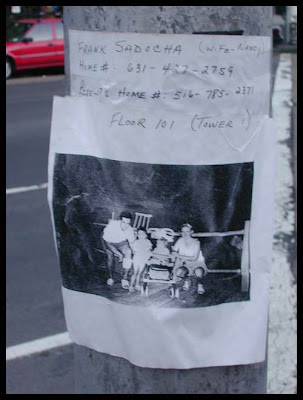 FRANK SADOCHA (WIFE-DIANE)
HOME #: 631-427-2759
HOME #: 516-785-2371
FLOOR 101 (TOWER 1)